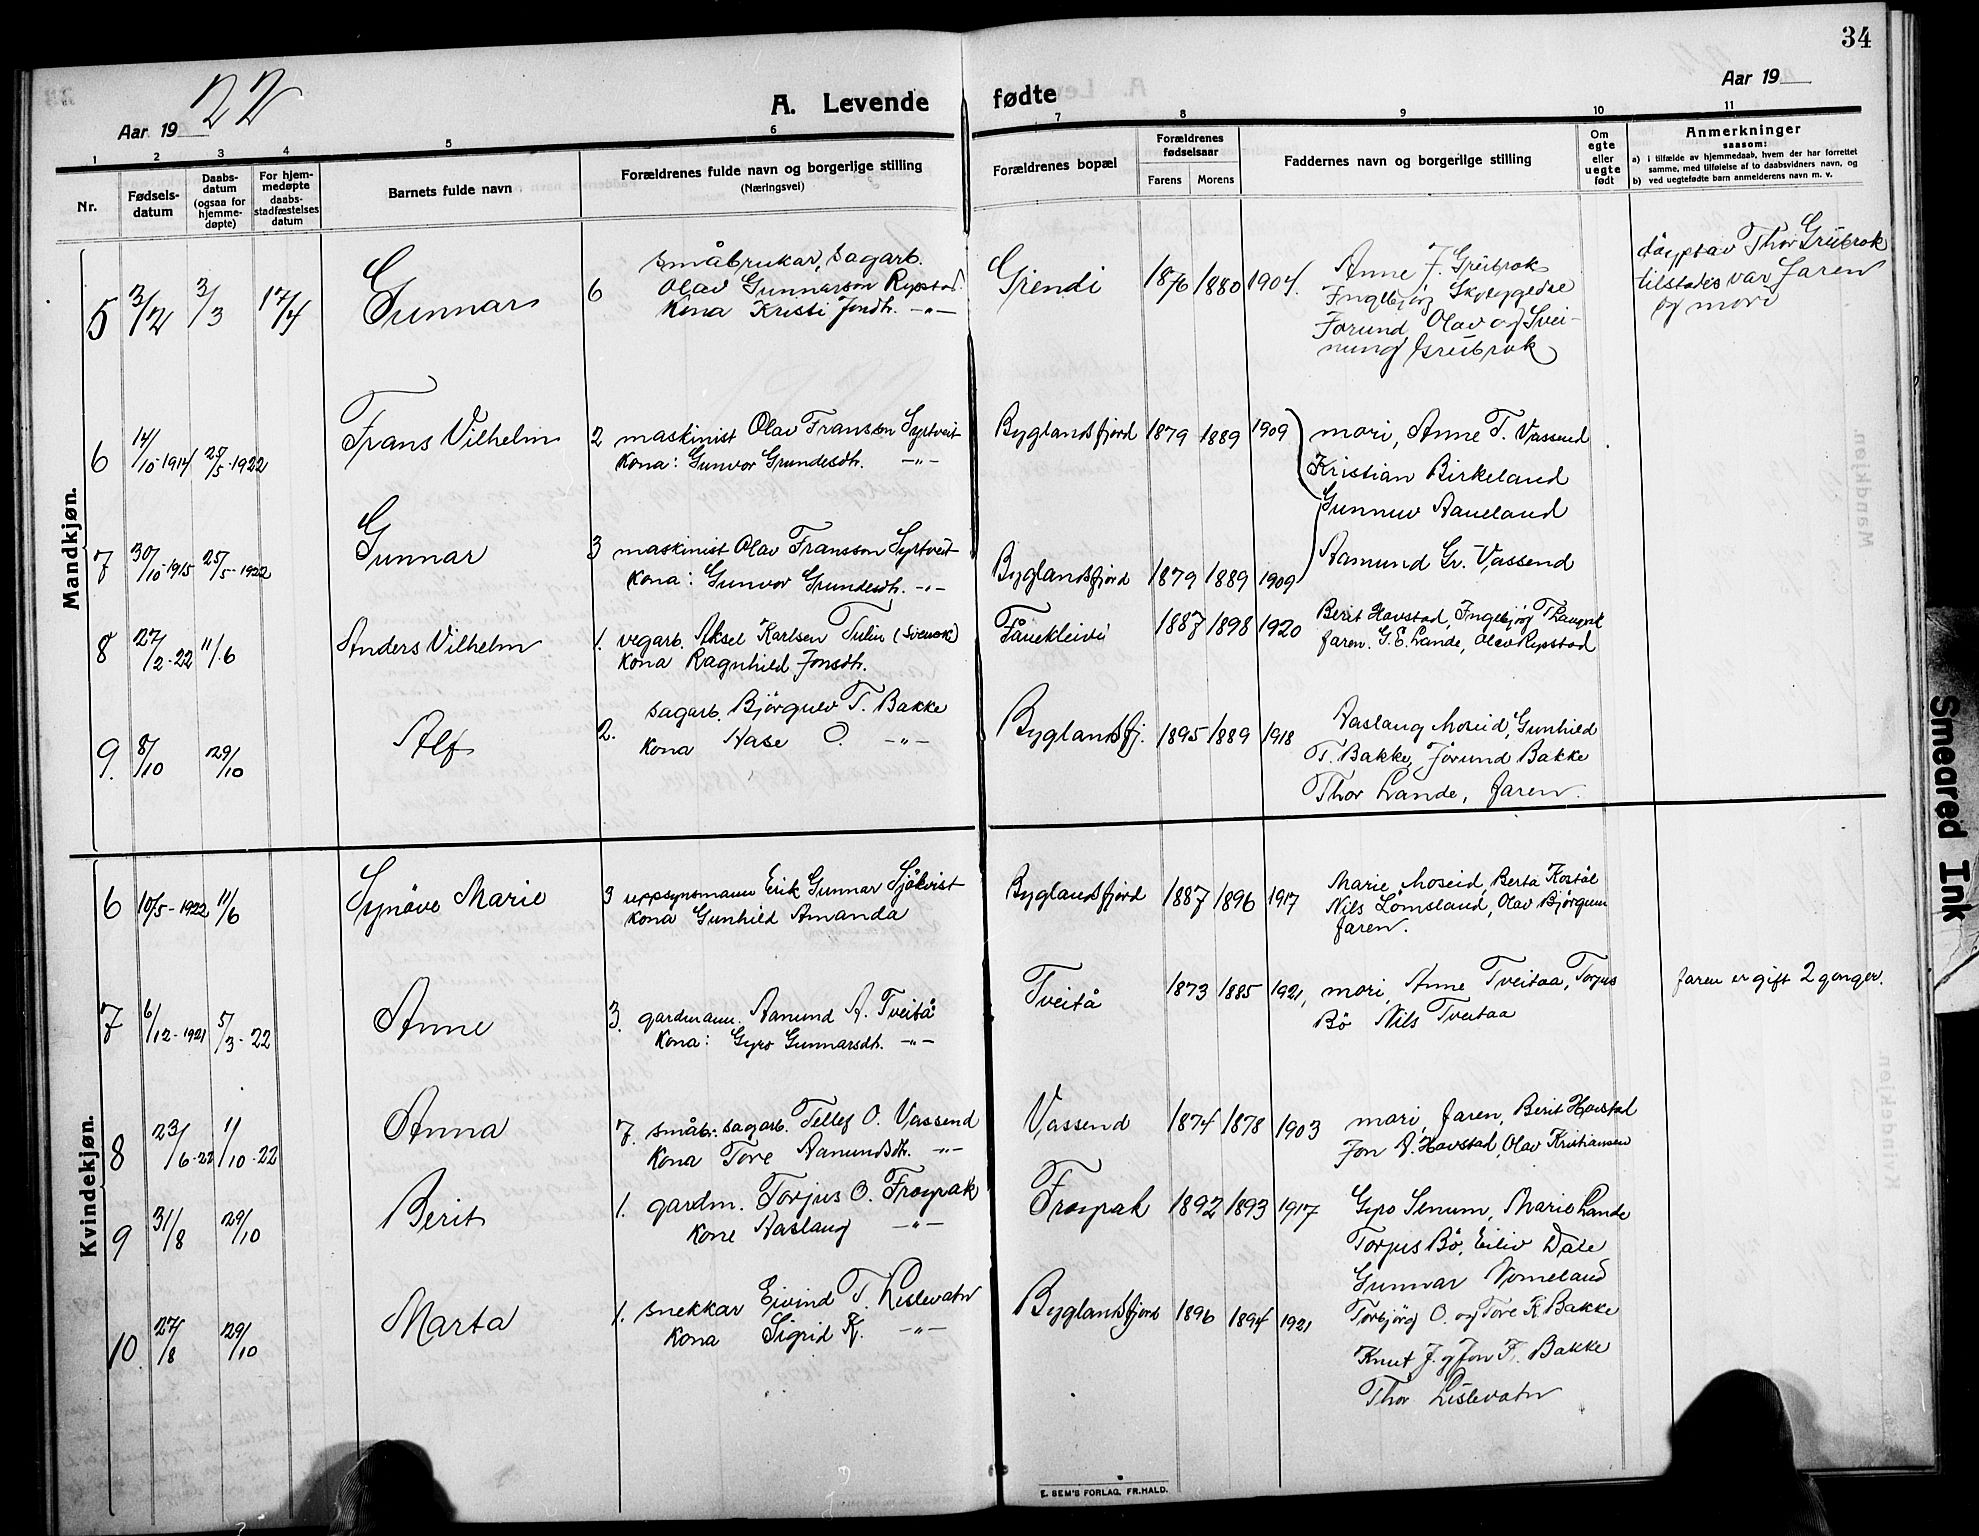 34
Aar 1922
A. Levende fødte
Aar 19
1 2 3 4 5 6 7 8 9 10 11
Nr.
Fødsels-
datum
Daabs-
datum
(ogsaa for
hjemme-
døpte)
For hjem-
medøpte
daabs-
stadfæstelses
datum
Barnets fulde navn
Forældrenes fulde navn og borgerlige stilling
(Næringsvei)
Forældrenes bopæl
Forældrenes
fødselsaar
Farens Morens
Faddernes navn og borgerlige stilling
Om
egte
eller
uegte
født
Anmerkninger
saasom:
a) i tilfælde av hjemmedaab, hvem der har forrettet
samme, med tilføielse af to daabsvidners navn, og
b) ved uegtefødte barn anmelderens navn m. v.
Mandkjøn.
5 3/2 3/3 17/4 Gunnar 6
småbrukar, sagarb.
Olav Gunnarson Rysstad
Kona Kristi Jondtr. -"-
Grendi 1876 1880 1904.
Anne J. Greibrok
Ingebjørg
Jorund, Olav og Svei-
nung Greibrok
døypt av Thor Greibrok
tilstades var faren
og mori
6 14/10-1914 25/5-1922 Frans Vilhelm
2 maskinist Olav Fransson Syrtveit
Kona: Gunvor Grundesdtr. -"-
Byglandsfjord 1879 1889 1909
mori, Anne T. Vassend
Kristian Birkeland
Gunnuv Aaneland
7 30/10-1915 25/5-1922 Gunnar
3 maskinist Olav Fransson Syrtveit
Kona: Gunvor Grundesdtr. -"-
Byglandsfjord 1879 1889 1909
Aamund Gr. Vassend
8 27/2-22 11/6 Anders Vilhelm
1. vegarb. Aksel Karlsen Tulin (Svensk)
Kona Ragnhild Jonsdtr.
Fånekleivi 1887 1898 1920
Berit Havstad, Ingebjørg
faren. G. E. Lande, Olav Rysstad
9. 8/10 29/10 Alf
2. sagarb. Bjørgulv T. Bakke
Kona Aase O. -"-
Byglandsfj. 1895 1889 1918
Aaslaug Moseid, Gunhild
T. Bakke, Jorund Bakke
Thor Lande, faren.
Kvindekjøn.
6 10/5-1922 11/6 Synøve Marie
3 uppsynsmann Erik Gunnar Sjökvist
Kona Gunhild Amanda
Byglandsfjord 1887 1896 1917
Marie Moseid, Berta Kostøl
Nils Lømsland, Olav Bjørgum
faren.
7 6/12-1921 5/3-22 Anne
3. gardmann. Aamund A. Tveitå
Kona: Gyro Gunnarsdtr. -"-
Tveitå 1873 1885 1921,
mori, Anne Tveitaa, Torjus
Bö Nils Tveitaa
faren er gift 2 gonger.
8 23/6-22 1/10-22 Anna
7. småbr. sagarb. Tellef O. Vassend
Kona Tore Aamundsdtr. -"-
Vassend 1874 1878 1903
mori, faren, Berit Havstad
Jon A. Havstad, Olav Kristiansen
9 31/8 29/10 Berit
1. gardm. Torjus O. Frøyrak
Kone Aaslaug -"-
Frøyrak 1892 1893 1917
Gyro Senum, Marie Lande
Torjus Bö, Eiliv Dale
Gunnar Vomeland
10. 27/8 29/10 Marta
1. snekkar Eivind T. Lislevatn
Kona Sigrid K. -"-
Byglandsfjord 1896 1894 1921
Torbjörg O. og Tore K. Bakke
Knut J. og Jon F. Bakke
Thor Lislevatn
E. SEM'S FORLAG, FR.HALD.
Smeared Ink